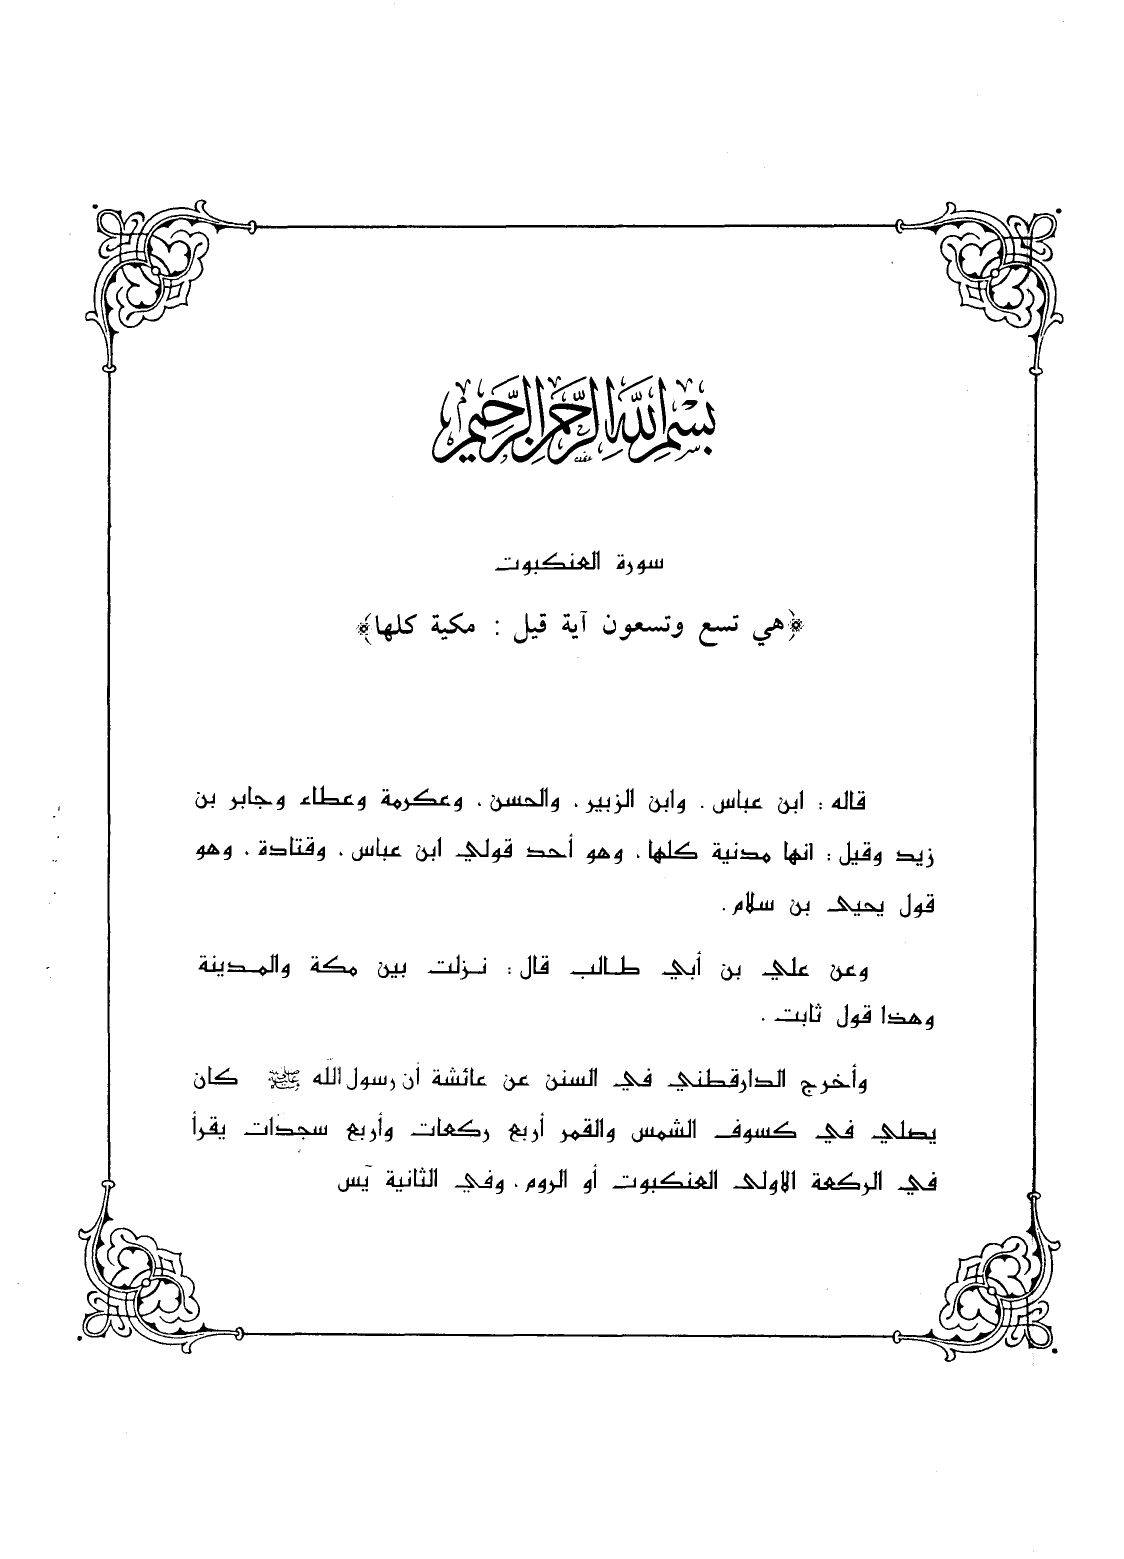 بسم الله الرحمن الرحيم
سورة العنكبوت
﴿هي تسع وتسعون آية قيل : مكية كلها﴾
قاله : ابن عباس . وابن الزبير . والحسن . وعكرمة وعطاء وجابر بن
زيد وقيل : انها مدنية كلها . وهو أحد قولي ابن عباس . وقتادة . وهو
قول يحيى بن سلام .
وعن علي بن أبي طالب قال : نزلت بين مكة والمدينة
وهذا قول ثابت .
وأخرج الدارقطني في السنن عن عائشة أن رسول الله ﷺ كان
يصلي في كسوف الشمس والقمر أربع ركعات وأربع سجدات يقرأ
في الركعة الاولى العنكبوت أو الروم . وفي الثانية يٓس